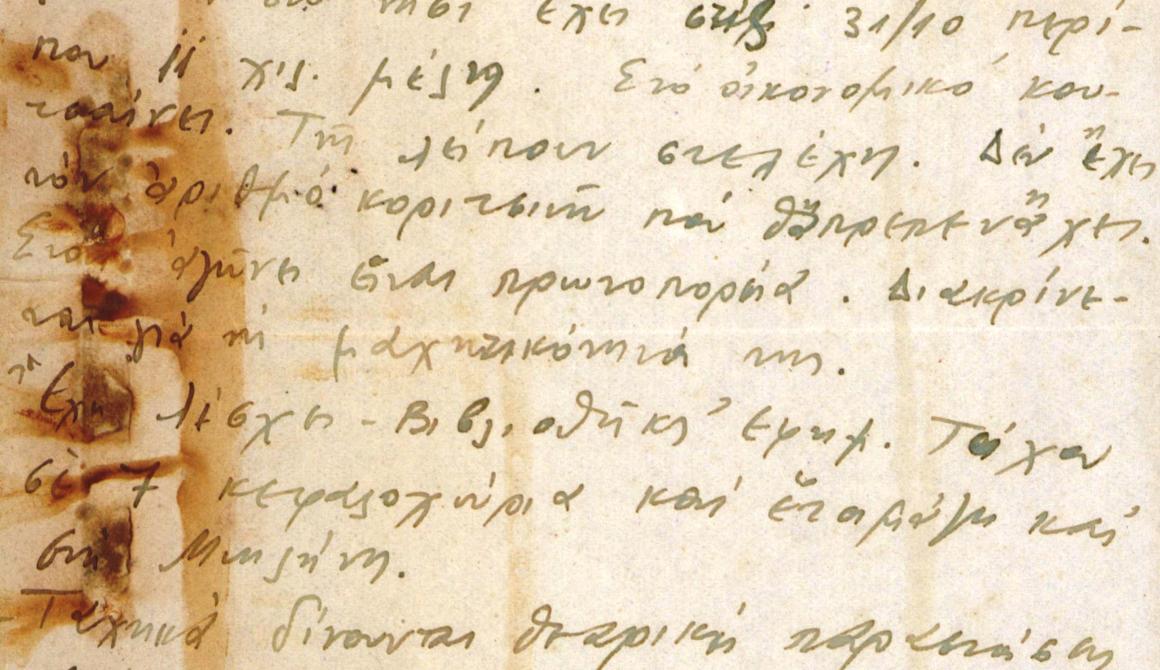 στό νησί ἔχει στίς 31/10 περί-
που 11 χιλ. μέλη. Στό οἰκονομικό κου-
τσαίνει. Τῆς λείπουν στελέχη. Δέν ἔχει
τόν ἀριθμό κοριτσιῶν πού θἄπρεπε νἄχει.
Στόν ἀγῶνα εἶναι πρωτοπορεία. Διακρίνε-
ται γιά τή μαχητικότητά της.
Ἔχει λέσχες - Βιβλιοθῆκες ἐφημ. Τάχα
σέ 7 κεφαλοχώρια καί ἑτοιμάζει καί
στή Μυτιλήνη.
Ταχτικά δίνονται θεατρικές παραστάσεις